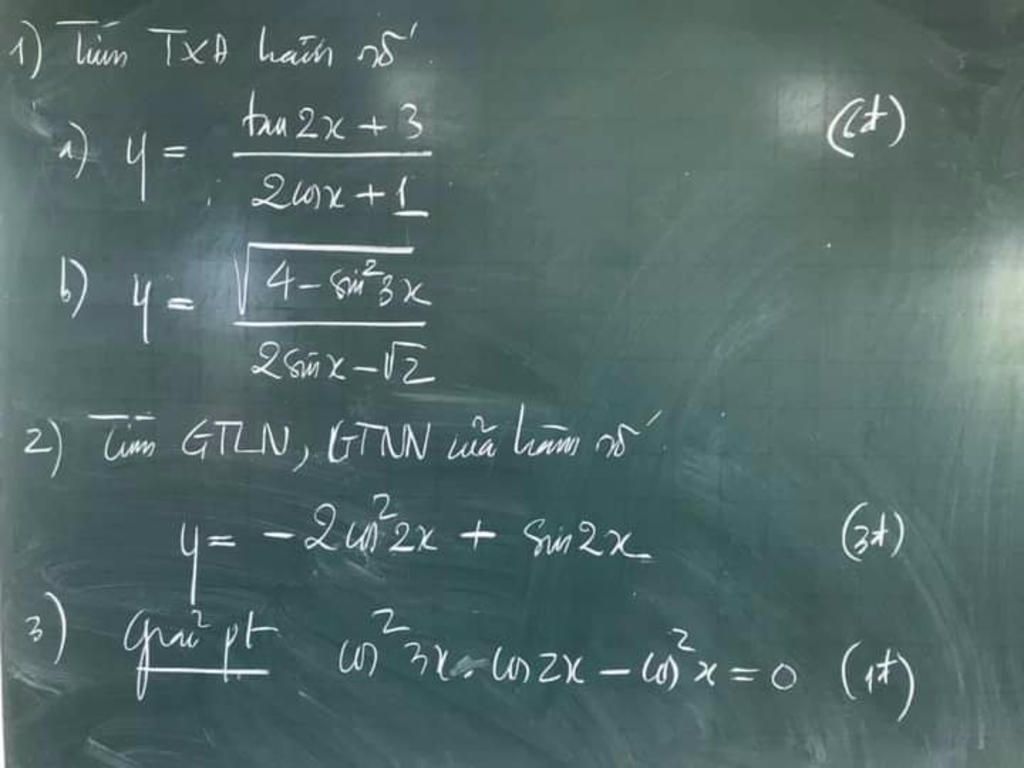 1) Tìm TXĐ hàm số
a) y = (tan2x + 3) / (2cosx + 1) (6đ)
b) y = √(4 - sin²3x) / (2sinx - √2)
2) Tìm GTLN, GTNN của hàm số
y = -2cos²2x + sin2x (3đ)
3) Giải pt cos²3x.cos2x - cos²x = 0 (1đ)